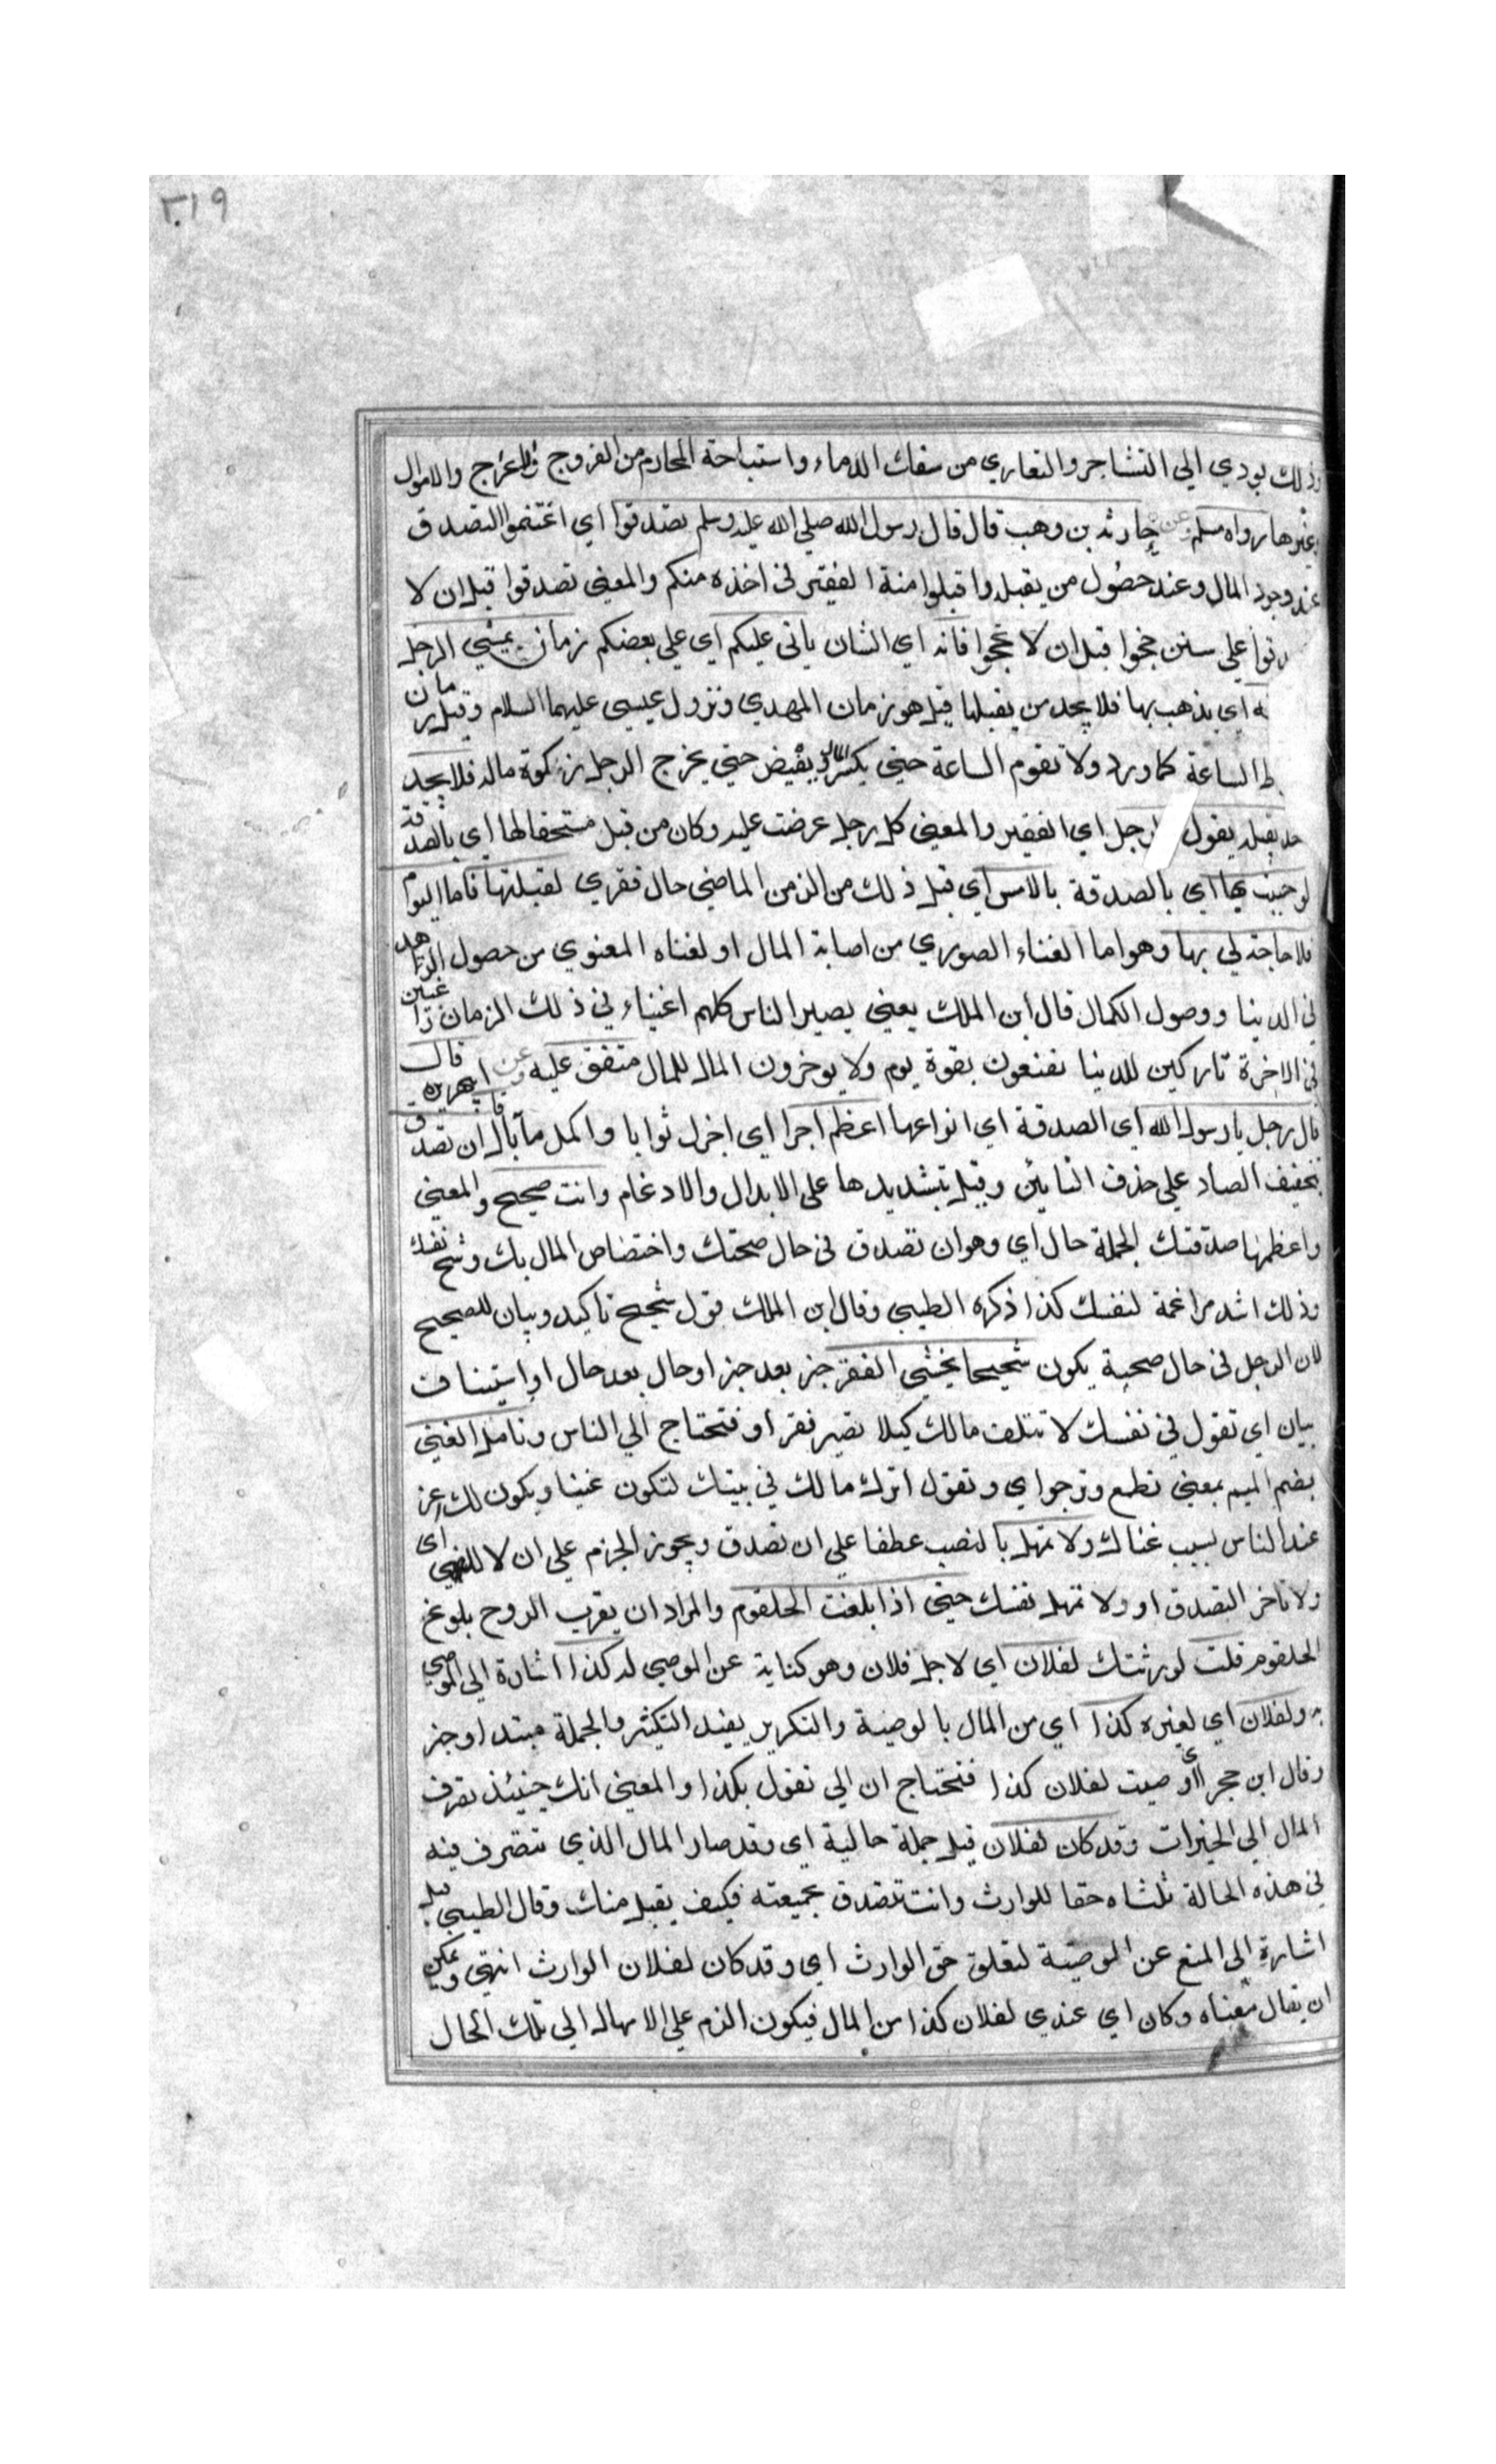 ٢٠١٩
وذلك يودي الي التشاجر والتعاري من سفك الدماء واستباحة المحارم من الفروج والاموال
وغيرها رواه مسلم وعن حارثة بن وهب قال قال رسول الله صلي الله عليه وسلم تصدقوا اي اغتنموا التصدق
عند وجود المال وعند حصول من يقبله واقبلوا منة الفقير في اخذه منكم والمعني تصدقوا قبل ان لا
علي سنن حجوا قبل ان لا تحجوا فانه اي الشان ياتي عليكم اي علي بعضكم زمان يمشي الرجل
اي يذهب بها فلا يجد من يقبلها قيل هو زمان المهدي ونزول عيسي عليهما السلام وقيل زمان
الساعة كما ورد ولا تقوم الساعة حتي يكثر المال ويفيض حتي يخرج الرجل زكوة ماله فلا يجد
يقبله يقول الرجل اي الفقير والمعني كل رجل عرضت عليه وكان من قبل مستحقا لها اي بالصدقة
لو جيت بها اي بالصدقة بالامس اي قبل ذلك من الزمن الماضي حال فقري لقبلتها فاما اليوم
فلا حاجة لي بها وهو اما الغناء الصوري من اصابة المال او لغناه المعنوي من حصول الزهد
في الدنيا ووصول الكمال قال ابن الملك يعني يصير الناس كلهم اغنياء في ذلك الزمان راغبين
في الاخرة تاركين للدنيا نقنعون بقوة يوم ولا يوخرون المال للمال متفق عليه وعن ابي هريرة قال
قال رجل يا رسول الله اي الصدقة اي انواعها اعظم اجرا اي اجزل ثوابا واكمل مآبا قال ان تصدق
بتخفيف الصاد علي حذف التائين وقيل بتشديدها علي الابدال والادغام وانت صحيح والمعني
واعظمها صدقتك الجملة حال اي وهو ان تصدق في حال صحتك واختصاص المال بك وشح نفسك
وذلك اشد مراغمة لنفسك كذا ذكره الطيبي وقال ابن الملك قول شحيح تاكيد وبيان للصحيح
لان الرجل في حال صحة يكون شحيحا يخشي الفقر خبر بعد خبر او حال بعد حال او استيناف
بيان اي تقول في نفسك لا تتلف مالك كيلا تصير فقرا وفتحتاج الي الناس وتامل الغني
بضم الميم بمعني تطمع وترجو اي وتقول اترك مالك في بيتك لتكون غنيا ويكون لك عز
عند الناس بسبب غناك ولا تمهل بالنصب عطفا علي ان تصدق ويجوز الجزم علي ان لا للنهي اي
ولا تاخر التصدق او ولا تمهل نفسك حتي اذا بلغت الحلقوم والمراد ان يقرب الروح بلوغ
الحلقوم قلت لورثتك لفلان اي لاجل فلان وهو كناية عن الموصي له كذا اشارة الي الموصي
به ولفلان اي لغيره كذا اي من المال بالوصية والتكرير يفيد التكثير والجملة مبتدا وخبر
وقال ابن حجر اي اوصيت لفلان كذا فتحتاج ان الي نقول بكذا والمعني انك حينئذ تصرف
المال الي الخيرات وقد كان لفلان قيل جملة حالية اي وقد صار المال الذي تتصرف فيه
في هذه الحالة ثلثاه حقا للوارث وانت تتصدق بجميعته فكيف يقبل منك وقال الطيبي قيل
اشارة الي المنع عن الوصية لتعلق حق الوارث اي وقد كان لفلان الوارث انتهي ويمكن
ان يقال معناه وكان اي عندي لفلان كذا من المال فيكون الذم علي الامهال الي تلك الحال